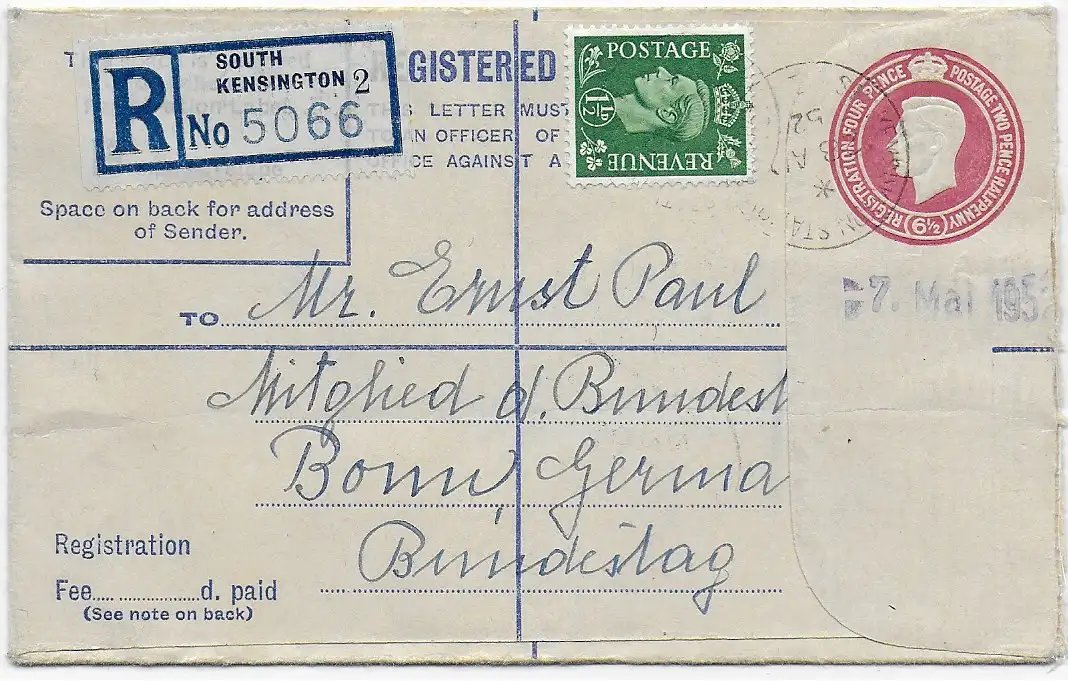 R
SOUTH
KENSINGTON 2
No 5066
T
GISTERED
THIS LETTER MUST
TO AN OFFICER OF
OFFICE AGAINST A
Space on back for address
of Sender.
POSTAGE
1½D
REVENUE
REGISTRATION, FOUR PENCE
POSTAGE TWO PENCE HALFPENNY
6½
ON STA
52
7. Mai 195
TO Mr. Ernst Paul
Mitglied d. Bundest
Bonn, Germa
Bundestag
Registration
Fee d. paid
(See note on back)